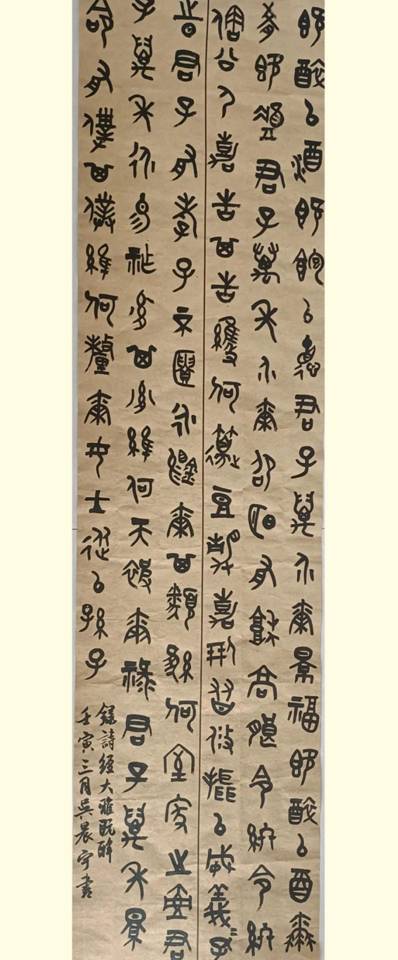 既醉以酒既飽以德君子萬介爾景福既醉以酒爾
殽既將君子萬年介爾昭明有融高朗令終令終
俶公尸嘉告其告維何籩豆靜嘉朋友攸攝以威儀孔
時君子有孝子不匱永錫爾其類維何室家之壼君
子萬年永錫祚胤其胤維何天被爾祿君子萬年景
命有僕其僕維何釐爾女士從以孫子
錄詩經大雅既醉
壬寅三月吳晨宇書